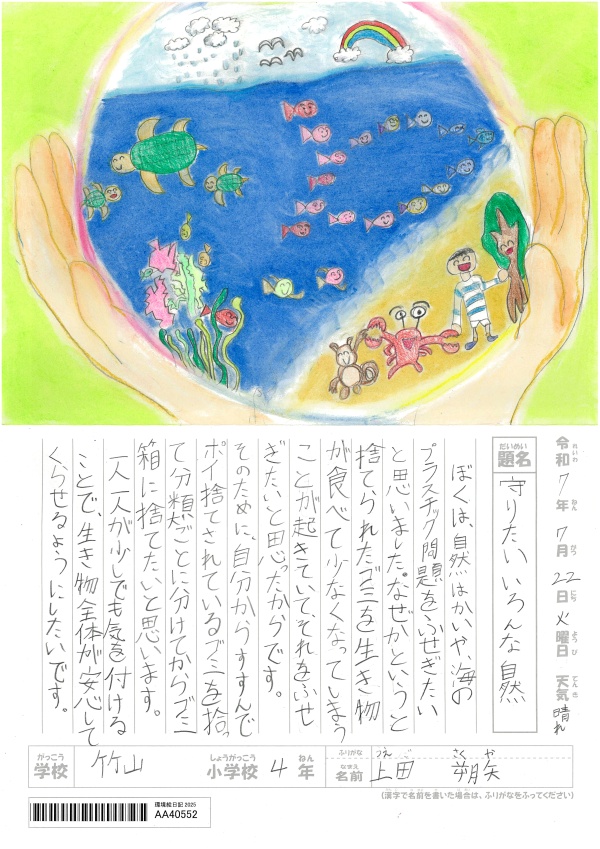 令和7年7月22日火曜日 天気 晴れ
れいわ ねん がつ にち ようび てんき
だいめい
題名 守りたいいろんな自然
ぼくは、自然はかいや、海の
プラスチック問題をふせぎたい
と思いました。なぜかというと
捨てられたゴミを生き物
が食べて少なくなってしまう
ことが起きていてそれをふせ
ぎたいと思ったからです。
そのために、自分からすすんで
ポイ捨てされているゴミを拾っ
て分類ごとに分けてからゴミ
箱に捨てたいと思います。
一人一人が少しでも気を付ける
ことで、生き物全体が安心して
くらせるようにしたいです。
がっこう しょうがっこう ねん ふりがな
学校 竹山 小学校 4年
なまえ
名前 上田 朔矢
さくや
(漢字で名前を書いた場合は、ふりがなをふってください)
環境絵日記 2025
AA40552